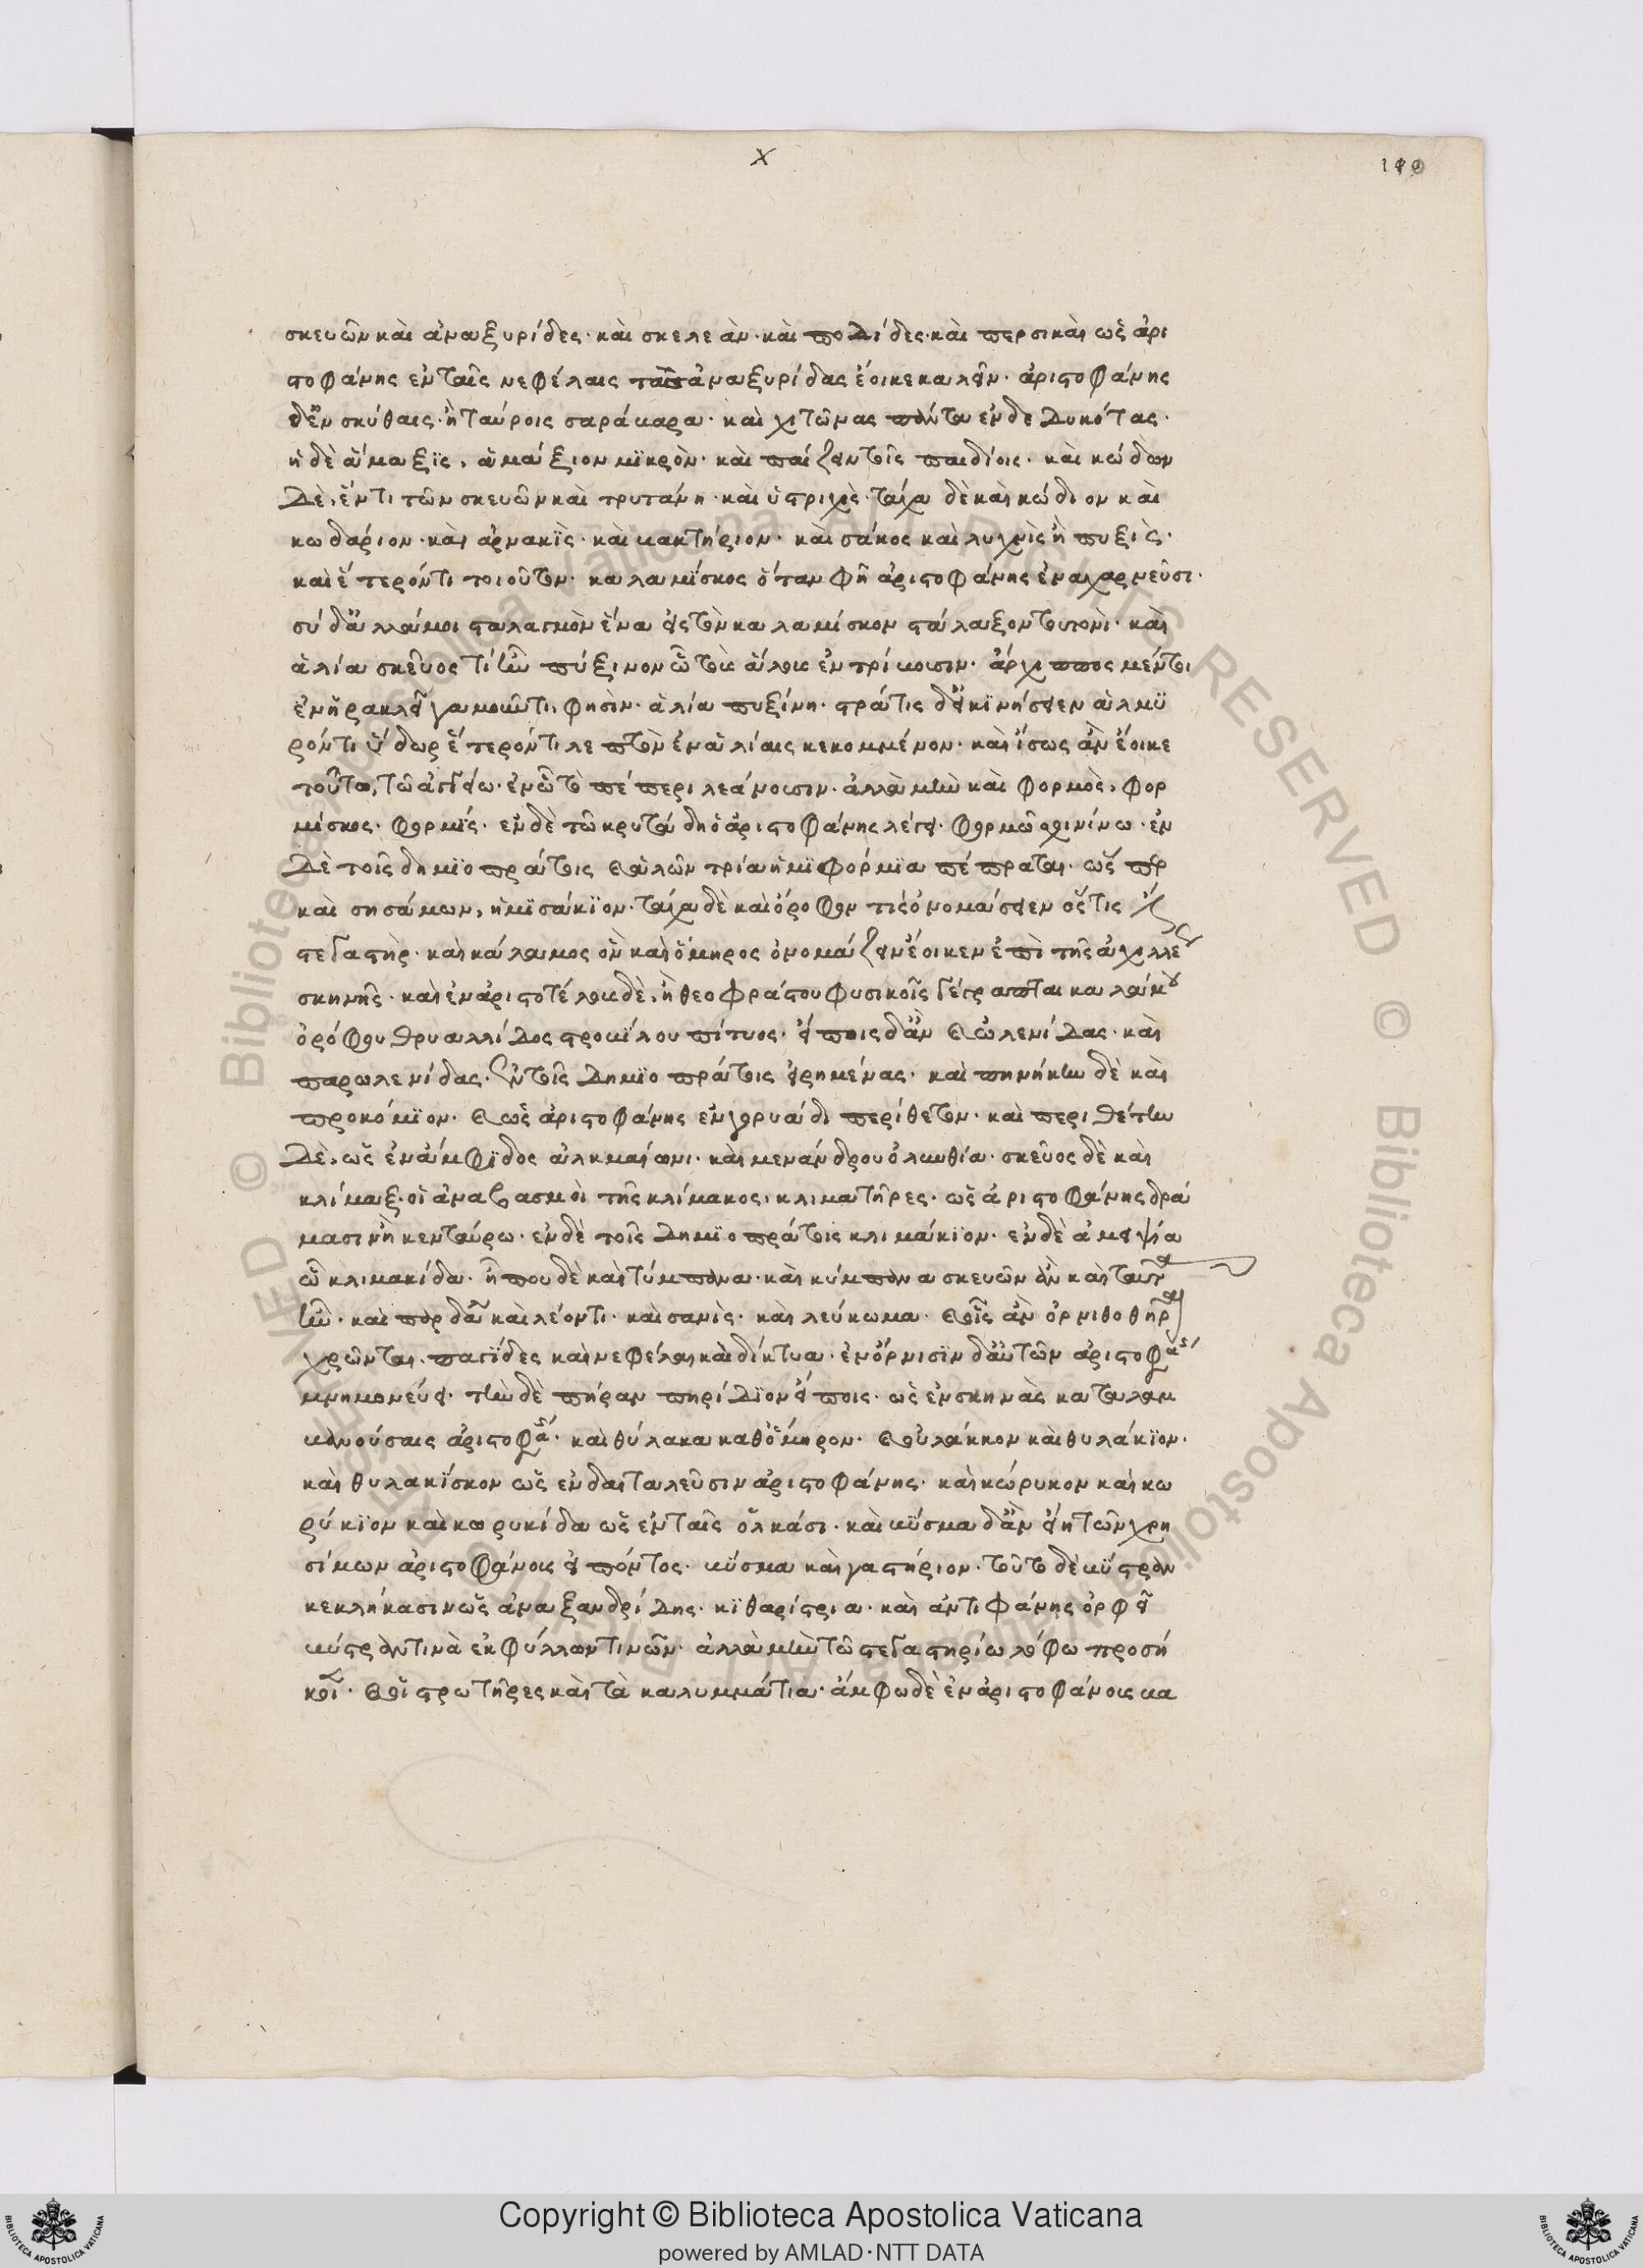 x
σκευῶν καὶ ἀναξυρίδες· καὶ σκελεὰν· καὶ πολίδες· καὶ περσικαὶ ὡς ἀρι
στοφάνης ἐν ταῖς νεφέλαις τὰς ἀναξυρίδας ἔοικε καλεῖν· ἀριστοφάνης
σκύθαις· ἢ ταύροις σαράκαρα· καὶ χιτῶνας πάντα ἐνδεδυκότας·
ἡ δὲ ἅμαξις, ἁμάξιον μϊκρὸν· καὶ παίζειν τοῖς παιδίοις· καὶ κώδων
δὲ, ἕν τι τῶν σκευῶν καὶ τρυτάνη· καὶ ὑστριχὶς· τάχα δὲ καὶ κώδιον καὶ
κωδάριον· καὶ ἀρνακϊς· καὶ κακτήριον· καὶ σάκος καὶ λυχνὶς ἢ πυξὶς·
καὶ ἕτερόν τι τοιοῦτον· καλαμίσκος ὅταν φῆ ἀριστοφάνης ἐν ἀχαρνεῦσι·
σύ δ' ἀλλά μοι σταλαγμὸν ἕνα εἰς τὸν καλαμίσκον στάλαξον τουτονὶ· καὶ
ἁλία σκεῦος τί ἦν πύξινον ᾧ τοὺς ἅλας ἐντρίβουσιν· ἄρχιππος μέντοι
ἐν ἡρακλεῖ γαμοῦντι, φησὶν· ἁλία πυξίνη· στράτις δὲ κϊνησίᾳ ἁλμυ
ρόν τι ὕδωρ ἕτερόν τι λεπτὸν ἐν ἁλίαις κεκομμένον· καὶ ἴσως ἂν ἔοικε
τοῦτο, τῷ ἀγγείῳ· ἐν ᾧ τὸ πέπερι λεαίνουσιν· ἀλλὰ μὴν καὶ φορμὸς, φορ
μίσκος· φορμϊς· ἐν δὲ τῷ κωκάλῳ δὴ ὁ ἀριστοφάνης λέγει· φορμῷ σχοινίνῳ· ἐν
δὲ τοῖς δημϊοπράτοις φακῶν τρία ἡμιφόρμϊα πέπραται· ὥσπερ
καὶ σησάμων, ἡμϊσάκϊον· τάχα δὲ καὶ ὄροφόν τις ὀνομάσειεν ὅστις
στεγαστὴρ· καὶ κάλαμος ὃν καὶ ὅμηρος ὀνομάζειν ἔοικεν ἐπὶ τῆς ἀχιλλέως
σκηνῆς· καὶ ἐν ἀριστοτέλους δὲ, ἢ θεοφράστου φυσικοῖς γέγραπται καλάμου
ὀρόφου θρυαλλίδος στροβίλου πίτυος· εἴποις δ' ἂν ὠλενίδας· καὶ
παρωλενίδας· ἐν τοῖς δημϊοπράτοις εἰρημένας· καὶ πηνήκην δὲ καὶ
προκόμϊον· ὡς ἀριστοφάνης ἐν γηρυάδι περίθετον· καὶ περιθέτην
δὲ, ὡς ἐν ἄμφϊδος ἀλκμαίωνι· καὶ μενάνδρου ὀλυνθία· σκεῦος δὲ καὶ
κλίμαξ· οἱ ἀναβασμοὶ τῆς κλίμακος, κλιματῆρες· ὡς ἀριστοφάνης δρά
μασιν ἢ κενταύρῳ· ἐν δὲ τοῖς δημϊοπράτοις κλιμάκϊον· ἐν δὲ ἀμειψία
ὢ κλιμακίδα· ἤπου δὲ καὶ τύμπανα· καὶ κύμπανα σκευῶν ἂν καὶ ταῦτα
ἦν· καὶ πὰρ δαῒ καὶ λέοντι· καὶ σανὶς· καὶ λεύκωμα· οἷς ἂν ὀρνιθοθῆραι
χρῶνται, παγίδες καὶ νεφέλαι καὶ δίκτυα· ἐν ὄρνισϊν δ' αὐτῶν ἀριστοφάνης
μνημονεύει· τὴν δὲ πήραν πηρίδϊον εἴποις· ὡς ἐν σκηνὰς καταλαμ
βανούσαις ἀριστοφάνης· καὶ θύλακα καθ' ὅμηρον· θύλακον καὶ θυλάκϊον·
καὶ θυλακϊσκον ὡς ἐν δαιταλεῦσιν ἀριστοφάνης· καὶ κώρυκον καὶ κω
ρύκϊον καὶ κωρυκίδα ὡς ἐν ταῖς ὁλκάσι· καὶ κϋσμα δ' ἂν εἴη τῶν χρη
σίμων ἀριστοφάνους εἰπόντος· κϋσμα καὶ γαστήριον· τοῦτο δὲ κύστρον
κεκλήκασιν ὡς ἀναξανδρίδης· κϊθαρίστρια· καὶ ἀντιφάνης ὀρφεῖ
κύστραν τινὰ ἐκ φύλλων τινῶν· ἀλλὰ μὴν τῷ στεγαστηρίῳ λόφῳ προσή
κοι· οἱ στρωτῆρες καὶ τὰ καλυμμάτια· ἄμφω δὲ ἐν ἀριστοφάνους βα
Copyright © Biblioteca Apostolica Vaticana
powered by AMLAD·NTT DATA